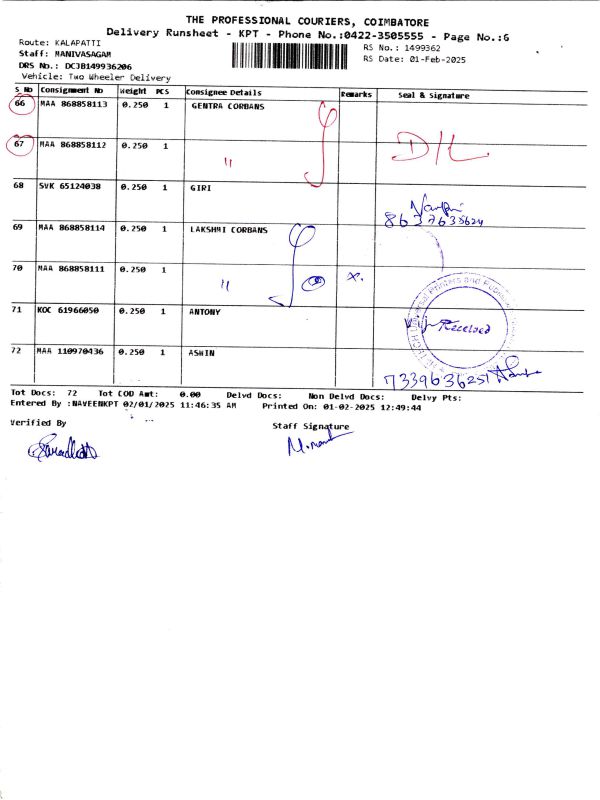 THE PROFESSIONAL COURIERS, COIMBATORE
Delivery Runsheet - KPT - Phone No.:0422-3505555 - Page No.:6
Route: KALAPATTI
Staff: MANIVASAGAM
DRS No.: DCJB149936206
Vehicle: Two Wheeler Delivery
RS No.: 1499362
RS Date: 01-Feb-2025
S No Consignment No Weight PCS Consignee Details Remarks Seal & Signature
66 MAA 868858113 0.250 1 GENTRA CORBANS
67 MAA 868858112 0.250 1 "
68 SVK 65124038 0.250 1 GIRI
8637635624
69 MAA 868858114 0.250 1 LAKSHMI CORBANS
70 MAA 868858111 0.250 1 "
71 KOC 61966050 0.250 1 ANTONY
Received
72 MAA 110970436 0.250 1 ASWIN
7339636251
Tot Docs: 72 Tot COD Amt: 0.00 Delvd Docs: Non Delvd Docs: Delvy Pts:
Entered By :NAVEENKPT 02/01/2025 11:46:35 AM Printed On: 01-02-2025 12:49:44
Verified By
Staff Signature